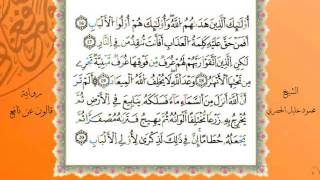 الشيخ
محمود خليل الحصري
أُوْلَٰٓئِكَ ٱلَّذِينَ هَدَىٰهُمُ ٱللَّهُ وَأُوْلَٰٓئِكَ هُمْ أُوْلُواْ ٱلْأَلْبَٰبِ
أَفَمَنْ حَقَّ عَلَيْهِ كَلِمَةُ ٱلْعَذَابِ أَفَأَنتَ تُنقِذُ مَن فِي ٱلنَّارِ
لَٰكِنِ ٱلَّذِينَ ٱتَّقَوْاْ رَبَّهُمْ لَهُمْ غُرَفٌ مِّن فَوْقِهَا غُرَفٌ مَّبْنِيَّةٌ تَجْرِي
مِن تَحْتِهَا ٱلْأَنْهَٰرُ وَعْدَ ٱللَّهِ لَا يُخْلِفُ ٱللَّهُ ٱلْمِيعَادَ أَلَمْ تَرَ
أَنَّ ٱللَّهَ أَنزَلَ مِنَ ٱلسَّمَآءِ مَآءً فَسَلَكَهُۥ يَنَٰبِيعَ فِي ٱلْأَرْضِ ثُمَّ
يُخْرِجُ بِهِۦ زَرْعًا مُّخْتَلِفًا أَلْوَٰنُهُۥ ثُمَّ يَهِيجُ فَتَرَىٰهُ مُصْفَرًّا ثُمَّ
يَجْعَلُهُۥ حُطَٰمًا إِنَّ فِي ذَٰلِكَ لَذِكْرَىٰ لِأُوْلِي ٱلْأَلْبَٰبِ
رواية
قالون عن نافع